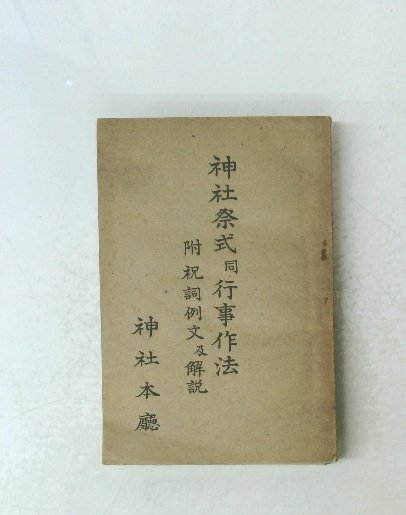 神社祭式同行事作法
附祝詞例文及解説
神社本廳